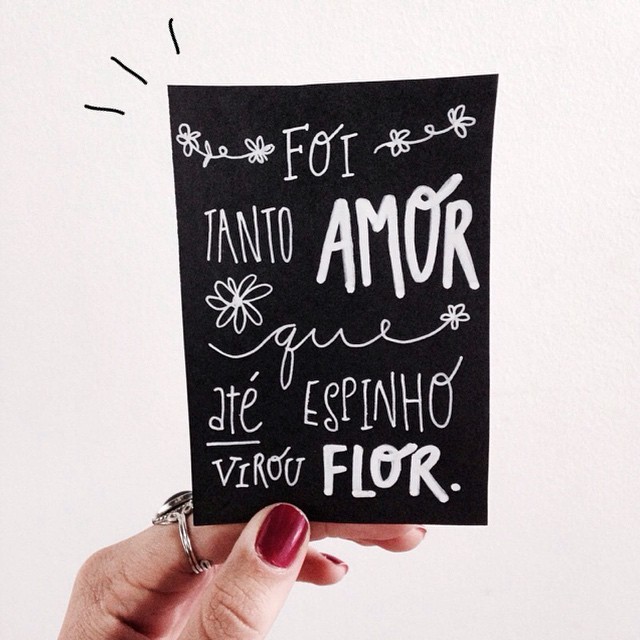 FOI
TANTO AMOR
que
até ESPINHO
VIROU FLOR.